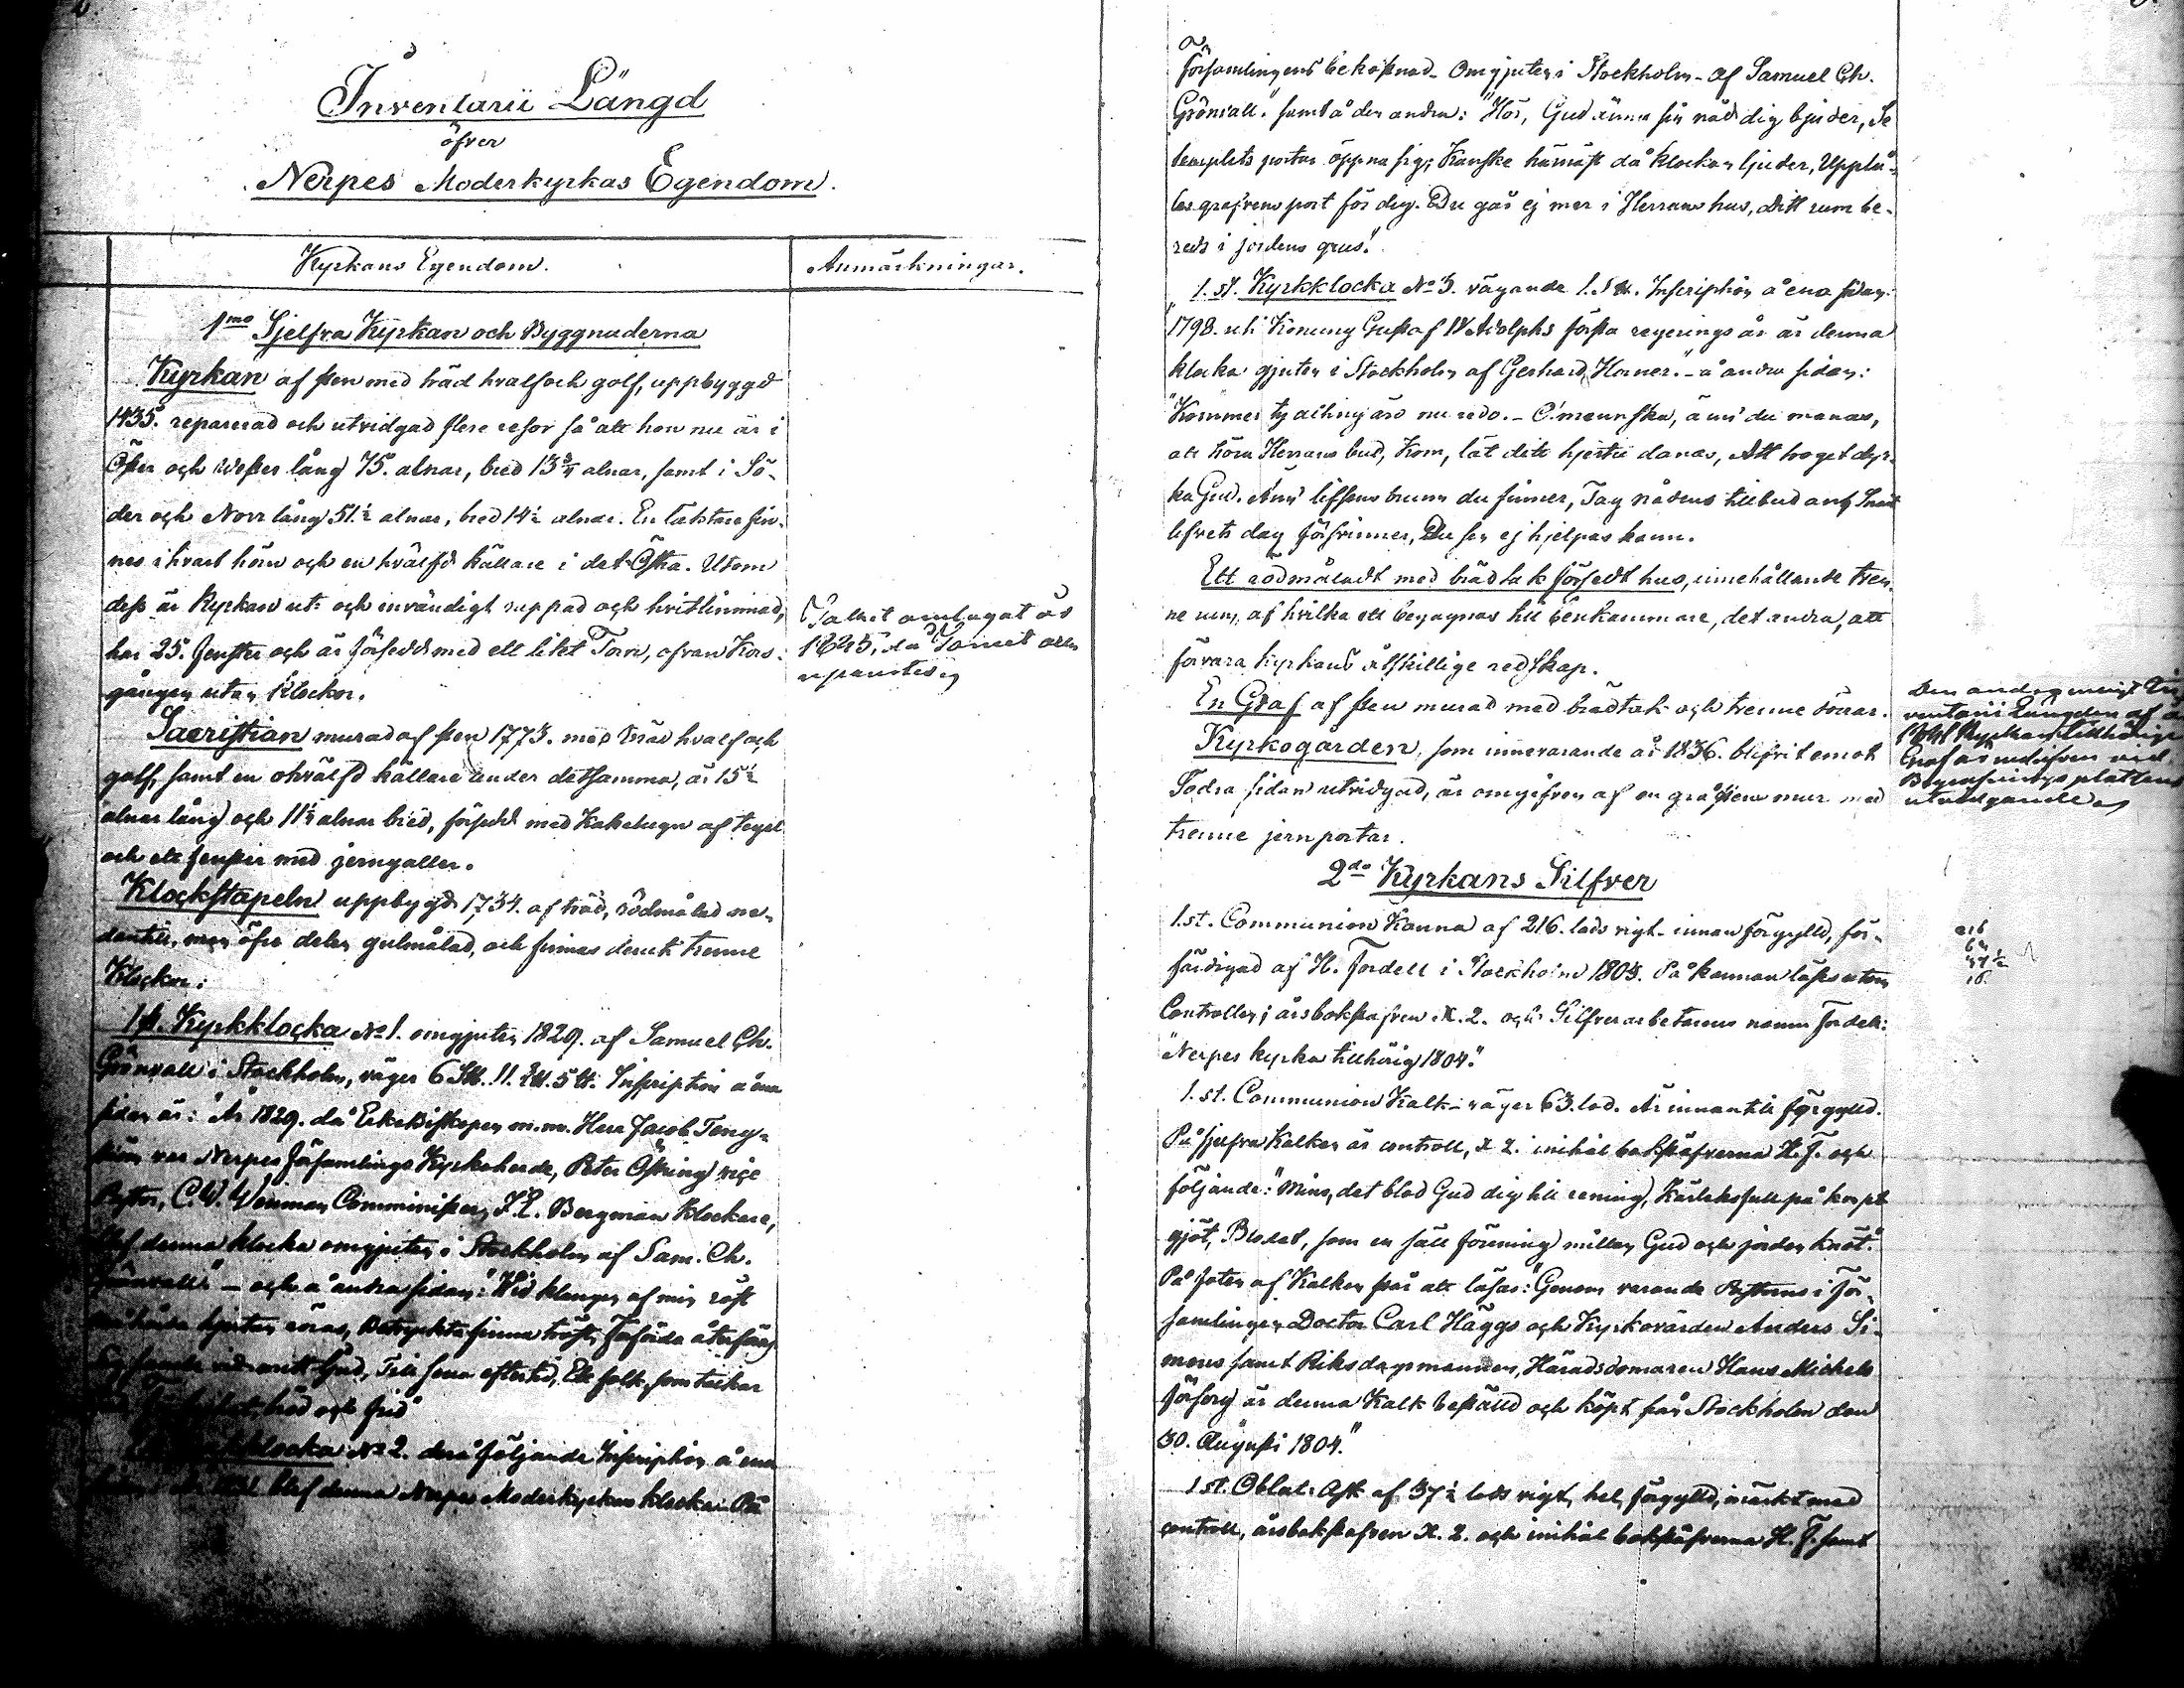 Inventarii Längd
öfver
Nerpes Moderkyrkas Egendom.
Kyrkans Egendom.
Anmärkningar.
1mo Sjelfva Kyrkan och Byggnaderna
Kyrkan af sten med träd hvalf och golf, uppbyggd
1435. reparerad och utvidgad flere resor så att hon nu är i
Öster och Wester lång 75. alnar, bred 13¾ alnar, samt i Sö-
der och Norr lång 51.½ alnar, bred 14½ alnar. En läktare fin-
nes i hvart hörn och en hvälfd källare i det Östra. Utom
dess är Kyrkan ut- och invändigt rappad och hvitlimmad,
har 25. fenster och är försedd med ett litet Torn, ofvan Kors-
gången utan klockor.
Taket omlagat år
1845, då Tornet
Sacristian murad af sten 1773. med träd hvalf och
golf, samt en ohvälfd källare under detsamma, är 15½
alnar lång och 11½ alnar bred, försedd med Kakelugn af tegel
och ett fenster med jerngaller.
Klockstapeln uppbygd 1734. af träd, rödmålad ne-
dantill, men öfre delen gulmålad, och finnas deruti trenne
Klockor:
1 st. Kyrkklocka No 1. omgjuten 1829. af Samuel Ch.
Grönvall i Stockholm, väger 6 S℔. 11. L℔. 5 ℔. Inscription å ena
sidan är: "År 1829. då ErkeBiskopen m.m. Herr Jacob Teng-
ström var Nerpes församlings Kyrkoherde, Peter Östring vice
Pastor, C.W. Wenman Comminister, J.E. Bergman Klockare,
blef denna klocka omgjuten i Stockholm af Sam. Ch.
Grönvall" – och å andra sidan: "Wid klangen af min röst
hårda hjertan röras, Betryckta finna tröst, Förförda återföras
mitt ljud, Till sena eftertid, Ett folk, som täckar
bröd och frid"
Kyrkklocka No 2. derå följande Inscription å ena
sidan: blef denna Nerpes Moderkyrkas klocka På
Församlingens bekostnad Omgjuten i Stockholm af Samuel Ch.
Grönvall." samt å den andra: "Hör, Gud ännu sin nåd dig bjuder, Se
templets portar öppna sig, Kanske härnäst då klockan ljuder, Upplå-
tes grafvens port för dig. Du går ej mer i Herrans hus, Ditt rum be-
reds i jordens grus."
1. st. Kyrkklocka No 3. vägande 1. S℔. Inscription å ena sidan:
"1798. uti Konung Gustaf IV Adolphs första regerings år är denna
klocka gjuten i Stockholm af Gerhard Horner." – å andra sidan:
"Kommer ty allting äro nu redo. – O! menniska, ännu du manas,
att höra Herrans bud, Kom, låt ditt hjerta danas, Att troget dyr-
ka Gud. Ännu lifsens brunn du finner, Tag nådens tillbud an, Snart
lifvets dag försvinner, Du sen ej hjelpas kann.
Ett rödmåladt med brädtak försedt hus, innehållande tren-
ne rum, af hvilka ett begagnas till benkammare, det andra, att
förvara kyrkans åtskillige redskap.
En Graf af sten murad med brädtak och trenne dörrar.
Kyrkogården, som innevarande år 1836. blifvit emot
Södra sidan utvidgad, är omgifven af en gråstens mur med
trenne jernportar.
Den endag enligt In-
ventarii Längden af år
Kyrkan tillhörige
Graf är
Begrafningsplatsens
utvidgande
2do Kyrkans Silfver
1. st. Communion Kanna af 216. lods vigt- innan förgylld, för-
färdigad af H. Fordell i Stockholm 1803. På kannan läses utom
Controllen; årsbokstafven X. 2. och Silfverarbetarens namn Fordell:
"Nerpes kyrka tillhörig 1804."
1. st. Communion Kalk- väger 63. lod. Är innantill förgylld.
På sjelfva Kalken är controll, X 2. initial bokstäfverna H. F. och
följande: "Minns, det blod Gud dig till rening, Kärleksfull på korset
göt, Blodet, som en säll förening mellan Gud och jorden knöt."
På foten af Kalken står att läsas: "Genom varande Pastorns i För-
samlingen Doctor Carl Häggs och Kyrkovärden Anders Si-
mons samt Riksdagsmannen, Häradsdomaren Hans Michels
försorg är denna Kalk beställd och köpt från Stockholm den
30. Augusti 1804."
1 st. Oblat- Ask af 37½ lods vigt, hel förgylld, märkt med
controll, årsbokstafven X. 2. och initial bokstäfverna H. F. samt
216